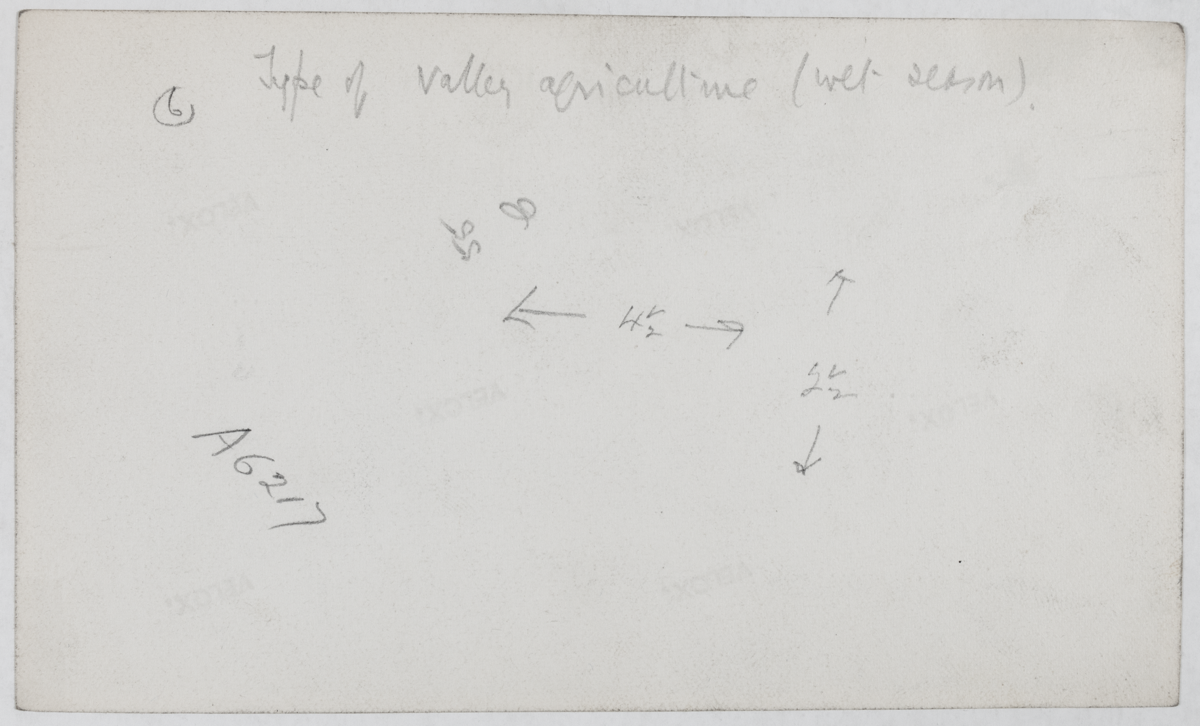 Type of valley agriculture (wet season).
6
← 4½ →
↑
2½
↓
A6217
VELOX
VELOX
VELOX
VELOX
VELOX
VELOX